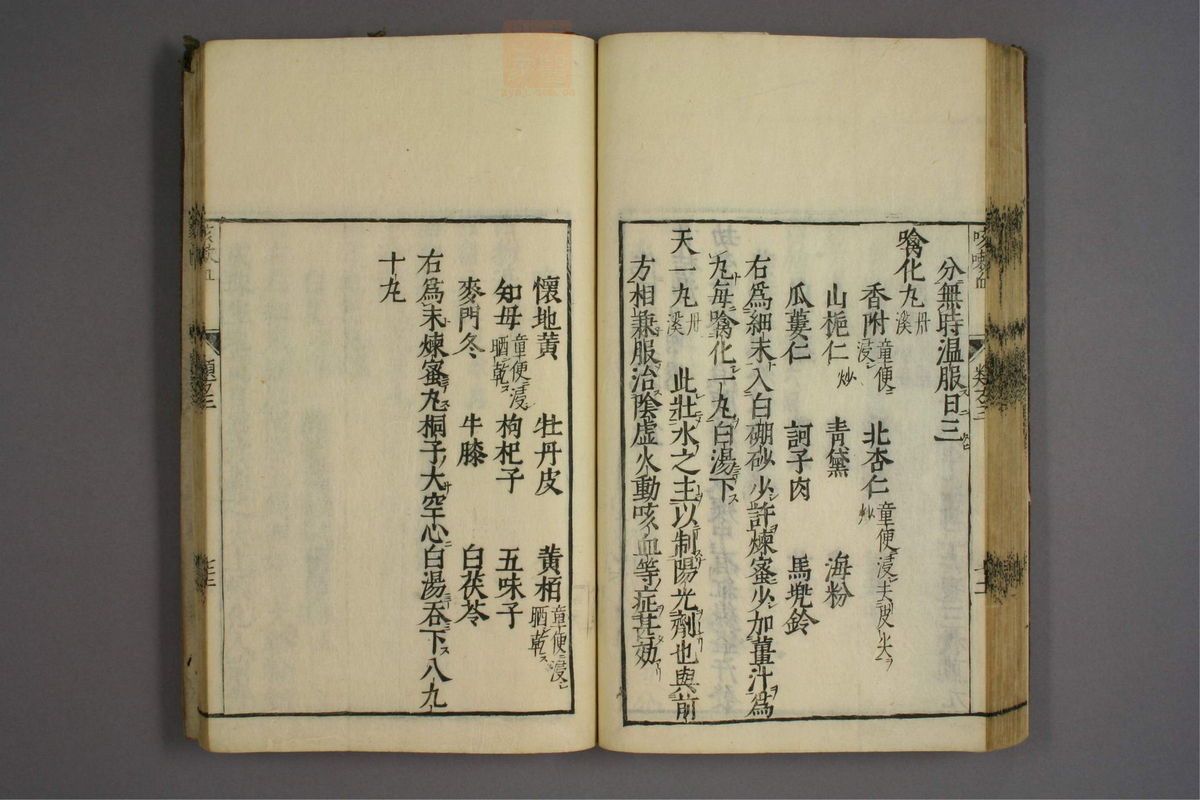 分無時温服日三
噙化丸 丹溪
香附 童便浸 北杏仁 童便浸去皮尖炒
山梔仁 炒 青黛 海粉
瓜蔞仁 訶子肉 馬兜鈴
右爲細末入白硼砂少許煉蜜少加薑汁爲
丸每噙化一丸白湯下
天一丸 丹溪 此壯水之主以制陽光劑也與前
方相兼服治陰虛火動咳血等症甚効
懷地黄 牡丹皮 黄栢 童便浸晒乾
知母 童便浸晒乾 枸杞子 五味子
麥門冬 牛膝 白茯苓
右爲末煉蜜丸桐子大空心白湯吞下八九
十丸